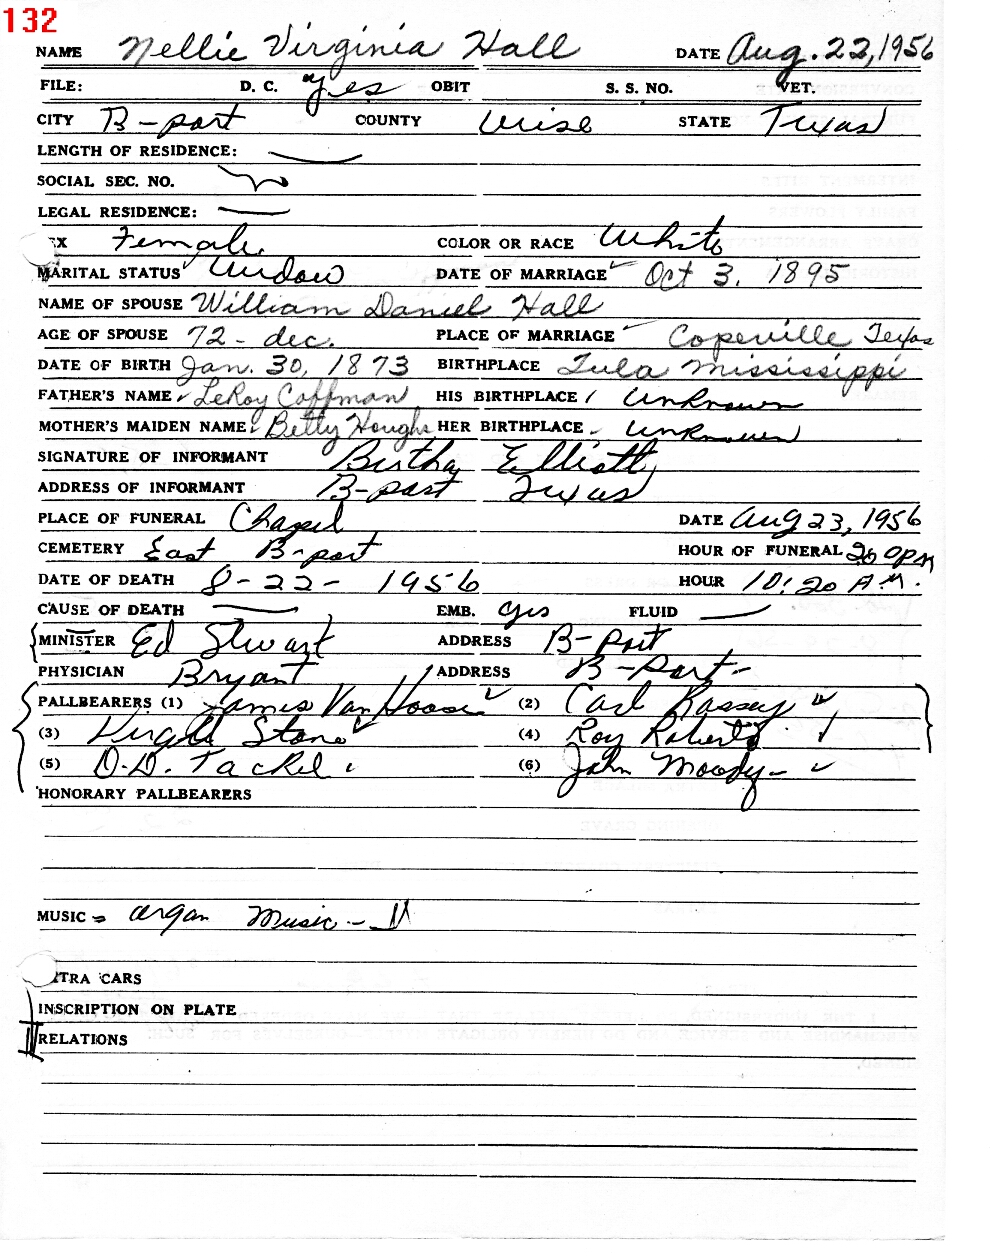 132
NAME Nellie Virginia Hall DATE Aug. 22, 1956
FILE: D. C. yes OBIT S. S. NO. VET.
CITY B-port COUNTY Wise STATE Texas
LENGTH OF RESIDENCE:
SOCIAL SEC. NO.
LEGAL RESIDENCE:
EX Female COLOR OR RACE White
MARITAL STATUS Widow DATE OF MARRIAGE Oct 3. 1895
NAME OF SPOUSE William Daniel Hall
AGE OF SPOUSE 72 - dec. PLACE OF MARRIAGE Copeville Texas
DATE OF BIRTH Jan. 30, 1873 BIRTHPLACE Tula Mississippi
FATHER'S NAME LeRoy Coffman HIS BIRTHPLACE Unknown
MOTHER'S MAIDEN NAME: Betty Houghs HER BIRTHPLACE Unknown
SIGNATURE OF INFORMANT Birtha Elliott
ADDRESS OF INFORMANT B-port Texas
PLACE OF FUNERAL Chapel DATE Aug 23, 1956
CEMETERY East B-port HOUR OF FUNERAL PM
DATE OF DEATH 8-22-1956 HOUR 10:20 A.M.
CAUSE OF DEATH EMB. yes FLUID
MINISTER Ed Stwart ADDRESS B-port
PHYSICIAN Bryant ADDRESS B-port-
PALLBEARERS (1) James VanHoose (2) Carl
(3) Virgil Stone (4) Roy Roberts
(5) O.D. Tackel (6) John Moody
HONORARY PALLBEARERS
MUSIC organ Music -
TRA CARS
INSCRIPTION ON PLATE
RELATIONS